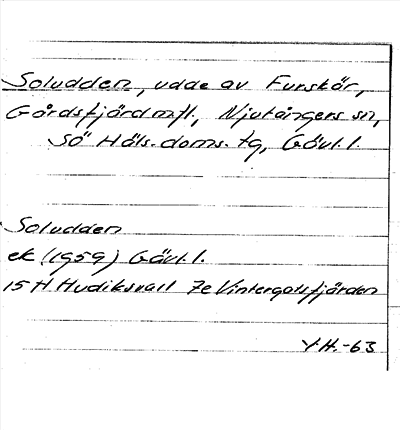 Soludden, udde av Furskär,
Gårdsfjärd m fl., Njutångers sn,
Sö Häls. doms. tg, Gävl. l.
Soludden
ek (1959) Gävl. l.
15 H Hudiksvall 7e Vintergatsfjärden
Y.H.-63